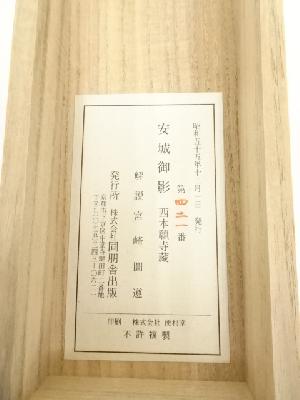 昭和五十五年十一月一日 発行
第四二一番
安城御影 西本願寺蔵
解説 宮崎圓遵
発行所 株式会社 同朋舎出版
印刷 株式会社 便利堂
不許複製